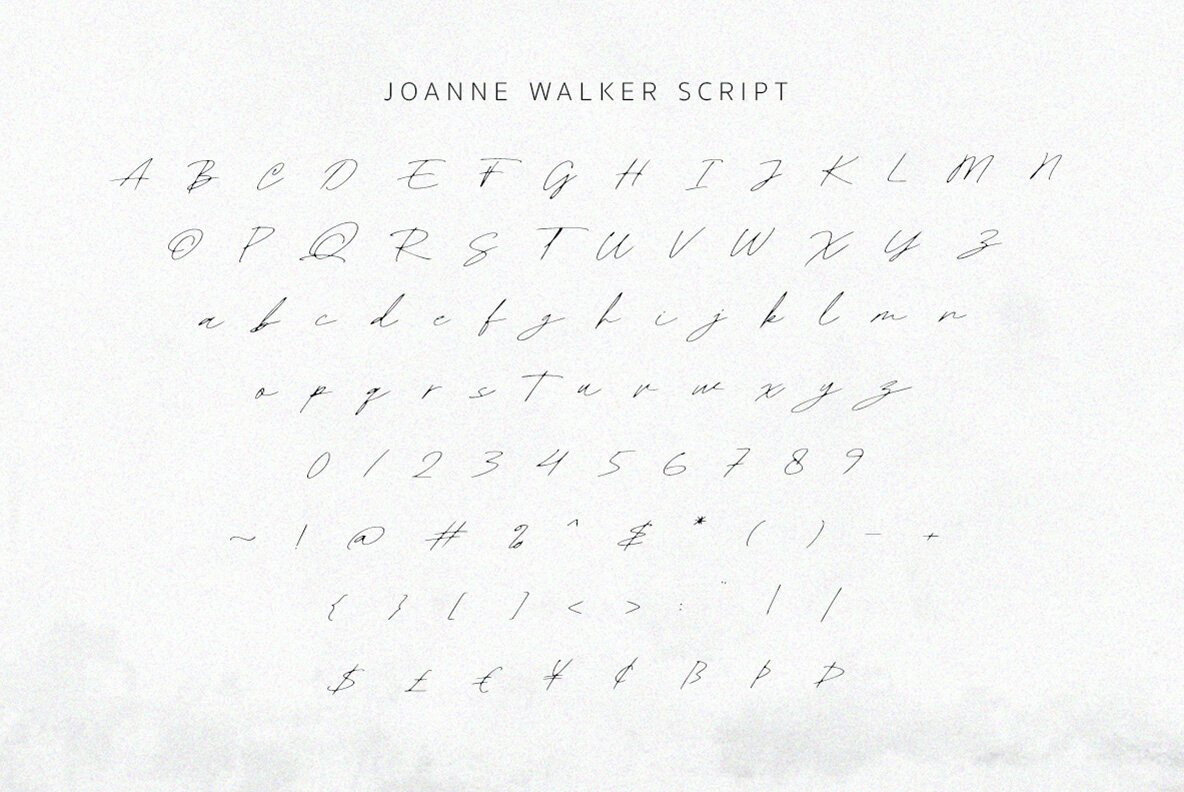 JOANNE WALKER SCRIPT
A B C D E F G H I J K L M N
O P Q R S T U V W X Y Z
a b c d e f g h i j k l m n
o p q r s t u v w x y z
0 1 2 3 4 5 6 7 8 9
~ ! @ # % ^ $ * ( ) - +
{ } [ ] < > : ¨ | /
$ £ € ¥ ¢ ß Þ Ð